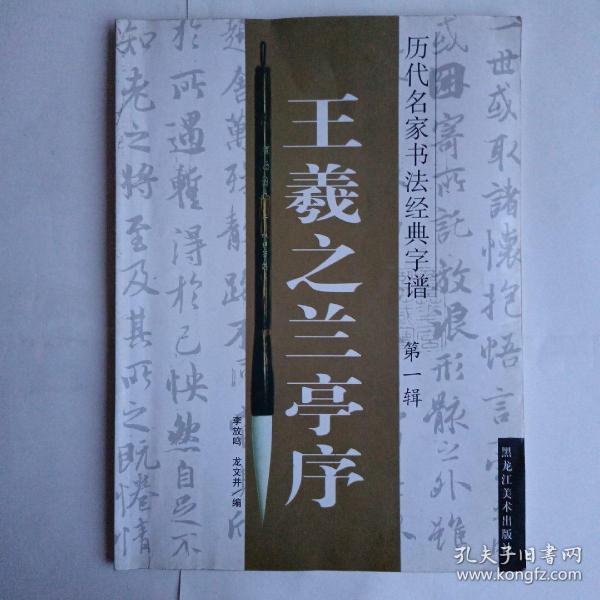 一世或取諸懷抱悟言
或因寄所託放浪形骸之外雖
历代名家书法经典字谱
第一辑
王羲之兰亭序
李放鸣 龙文井 编
黑龙江美术出版社
趣舍萬殊静躁不
於所遇蹔得於己怏然自
知老之將至及其所之既惓情
孔夫子旧书网
www.kongfz.com